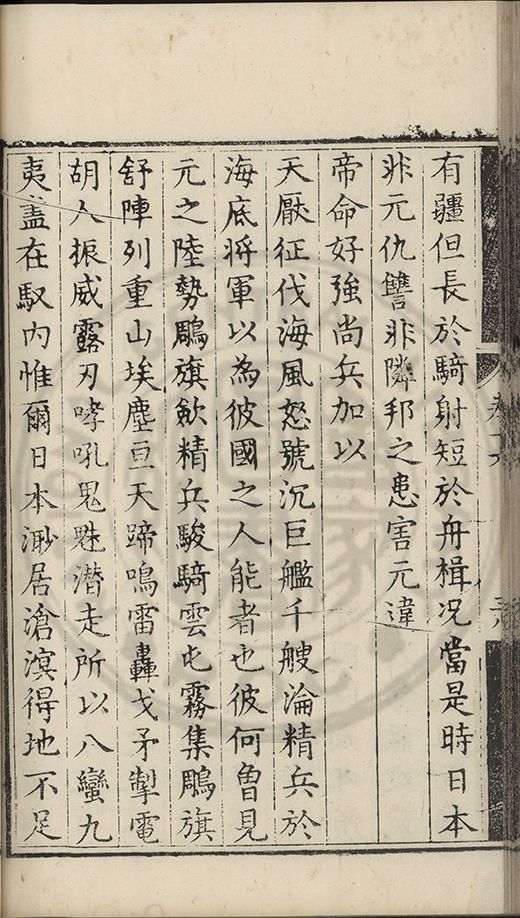 有疆但長於騎射短於舟楫况當是時日本
非元仇讐非隣邦之患害元違
帝命好強尚兵加以
天厭征伐海風怒號沉巨艦千艘淪精兵於
海底将軍以為彼國之人能者也彼何曾見
元之陸勢鵰旗歛精兵駿騎雲屯霧集鵰旗
舒陣列重山埃塵亘天蹄鳴雷轟戈矛掣電
胡人振威露刃哮吼鬼魅潜走所以八蠻九
夷盖在馭内惟爾日本渺居滄溟得地不足